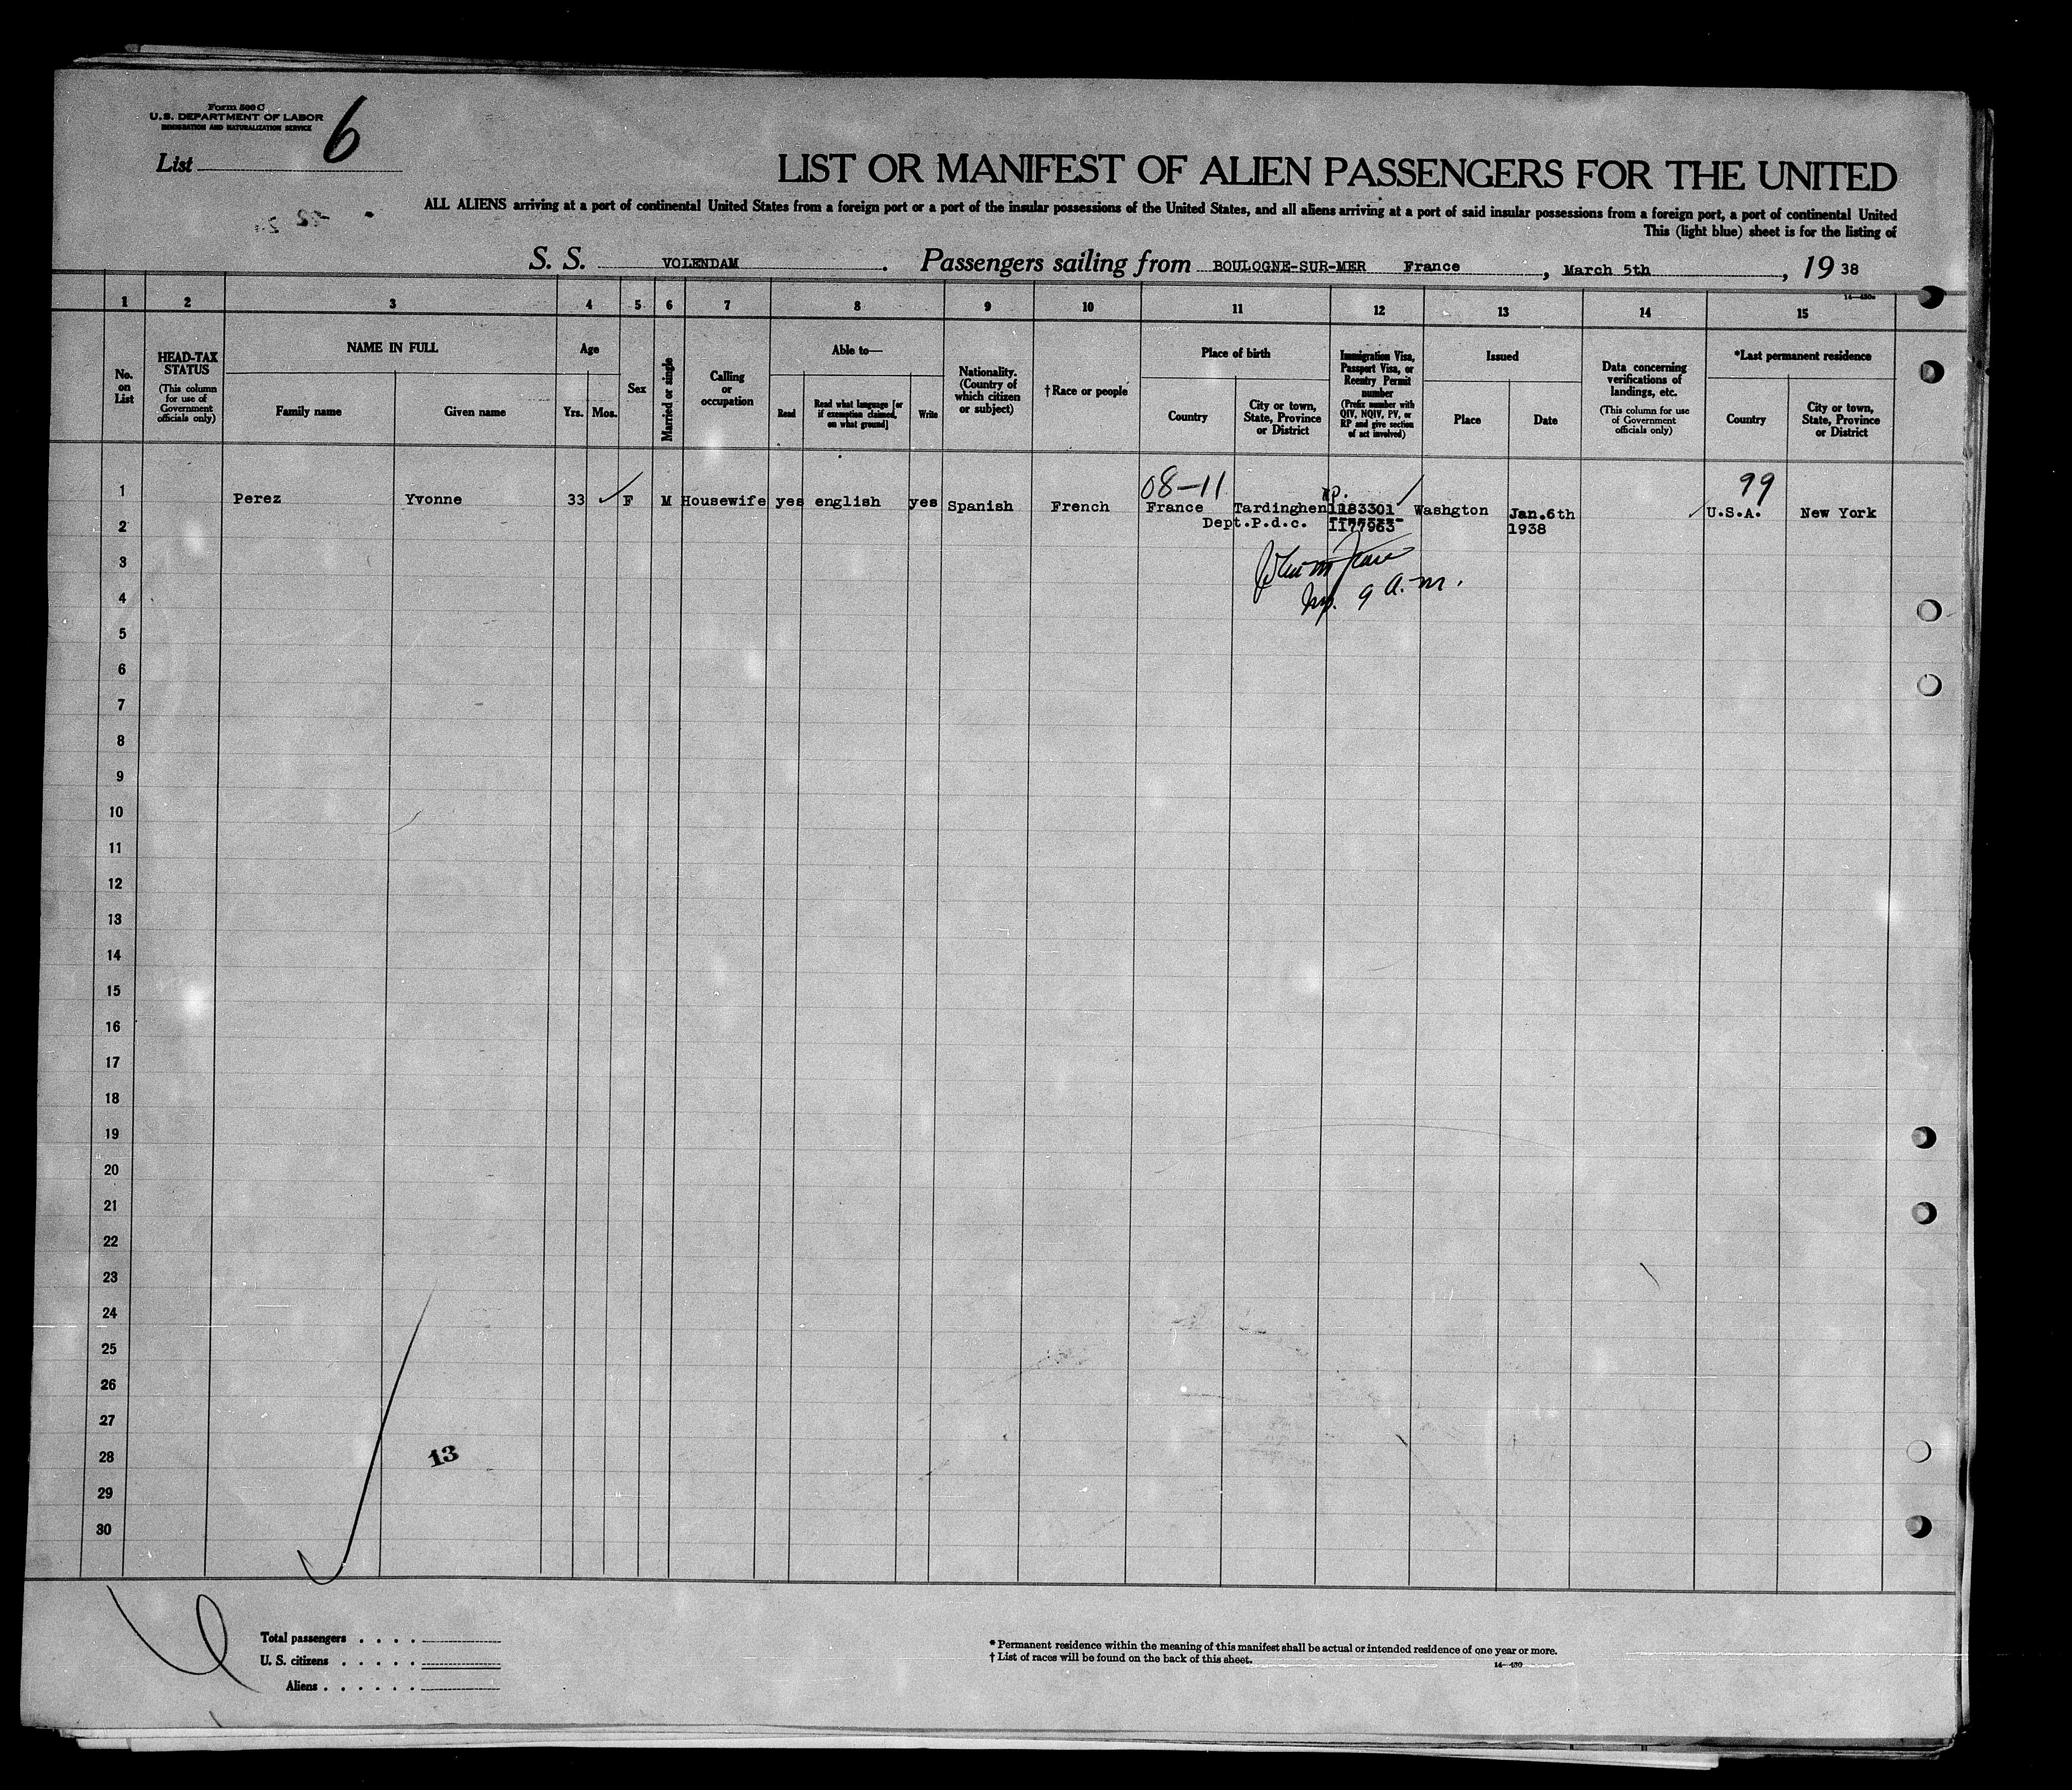 Form 500 C
U.S. DEPARTMENT OF LABOR
IMMIGRATION AND NATURALIZATION SERVICE
List 6
LIST OR MANIFEST OF ALIEN PASSENGERS FOR THE UNITED
ALL ALIENS arriving at a port of continental United States from a foreign port or a port of the insular possessions of the United States, and all aliens arriving at a port of said insular possessions from a foreign port, a port of continental United
This (light blue) sheet is for the listing of
S. S. VOLENDAM . Passengers sailing from BOULOGNE-SUR-MER France , March 5th , 19 38
1 2 3 4 5 6 7 8 9 10 11 12 13 14 15
No. on List
HEAD-TAX STATUS
(This column for use of Government officials only)
NAME IN FULL
Family name
Given name
Age
Yrs.
Mos.
Sex
Married or single
Calling or occupation
Able to—
Read
Read what language [or if exemption claimed, on what ground]
Write
Nationality. (Country of which citizen or subject)
† Race or people
Place of birth
Country
City or town, State, Province or District
Immigration Visa, Passport Visa, or Reentry Permit number
(Prefix number with QIV, NQIV, PV, or RP and give section of act involved)
Issued
Place
Date
Data concerning verifications of landings, etc.
(This column for use of Government officials only)
*Last permanent residence
Country
City or town, State, Province or District
08-11 99
1 Perez Yvonne 33 F M Housewife yes english yes Spanish French France Tardinghen 1183301 Washgton Jan.6th U.S.A. New York
2 Dept.P.d.c. 1177963 1938
3
4 9 a.m.
5
6
7
8
9
10
11
12
13
14
15
16
17
18
19
20
21
22
23
24
25
26
27
28 13
29
30
Total passengers . . . .
U. S. citizens . . . . .
Aliens . . . . . .
* Permanent residence within the meaning of this manifest shall be actual or intended residence of one year or more.
† List of races will be found on the back of this sheet.
14—430